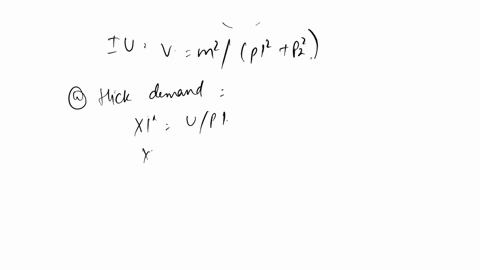 IU: V = m²/(p1² + P2²)
ⓐ Hick demand :
X1ᴬ = U/P1.
X